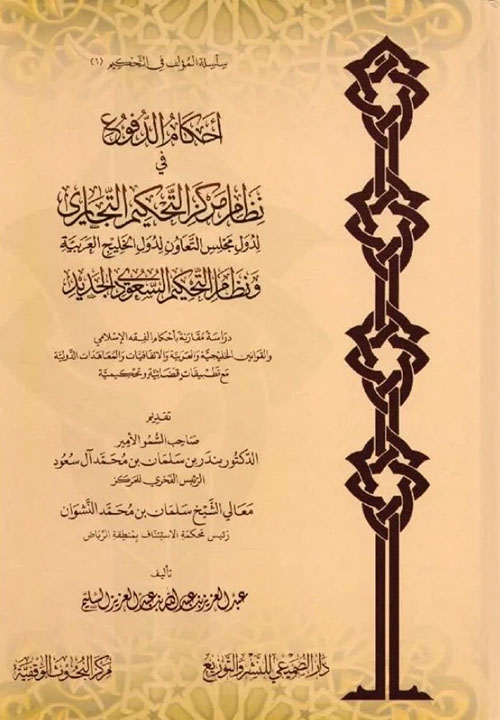 سلسلة المؤلف في التحكيم (١)
أحكام الدفوع
في
نظام مركز التحكيم التجاري
لدول مجلس التعاون لدول الخليج العربية
ونظام التحكيم السعودي الجديد
دراسة مقارنة بأحكام الفقه الإسلامي
والقوانين الخليجية والعربية والاتفاقيات والمعاهدات الدولية
مع تطبيقات قضائية وتحكيمية
تقديم
صاحب السمو الأمير
الدكتور بندر بن سلمان بن محمد آل سعود
الرئيس الفخري للمركز
معالي الشيخ سلمان بن محمد النشوان
رئيس محكمة الاستئناف بمنطقة الرياض
تأليف
عبد العزيز بن عبد الله بن عبد العزيز السليم
دار الصميعي للنشر والتوزيع
مركز البحوث الوقفية